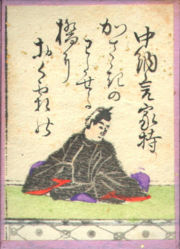 中納言家持
かささきの
わたせる
橋に
おく霜の